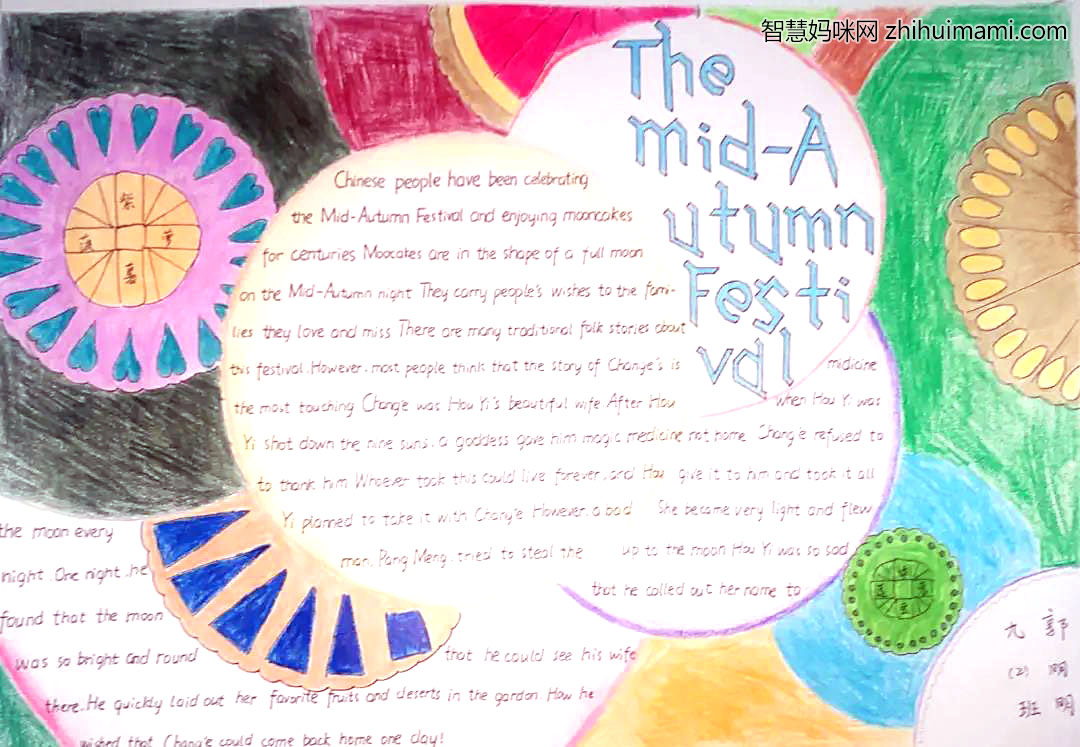 智慧妈咪网 zhihuimami.com
The
mid-A
utumn
Festi
val
Chinese people have been celebrating
the Mid-Autumn Festival and enjoying mooncakes
for centuries Moocates are in the shape of a full moon
on the Mid-Autumn night They carry people's wishes to the fami-
lies they love and miss There are many traditional folk stories about
this festival.However, most people think that the story of Change's is
the most touching Chang'e was Hou Yi's beautiful wife After Hou
Yi shot down the nine suns, a goddess gave him magic medicine
to thank him Whoever took this could live forever, and Hou
Yi planned to take it with Chang'e However, a bad
man, Pang Meng, tried to steal the
midicine
when Hou Yi was
not home Chang'e refused to
give it to him and took it all
She became very light and flew
up to the moon Hou Yi was so sad
that he called out her name to
the moon every
night.One night.he
found that the moon
was so bright and round
that he could see his wife
there..He quickly laid out her favorite fruits and deserts in the gardon. How he
wished that Chang'e could come back home one day!
九(2)班
郭明明